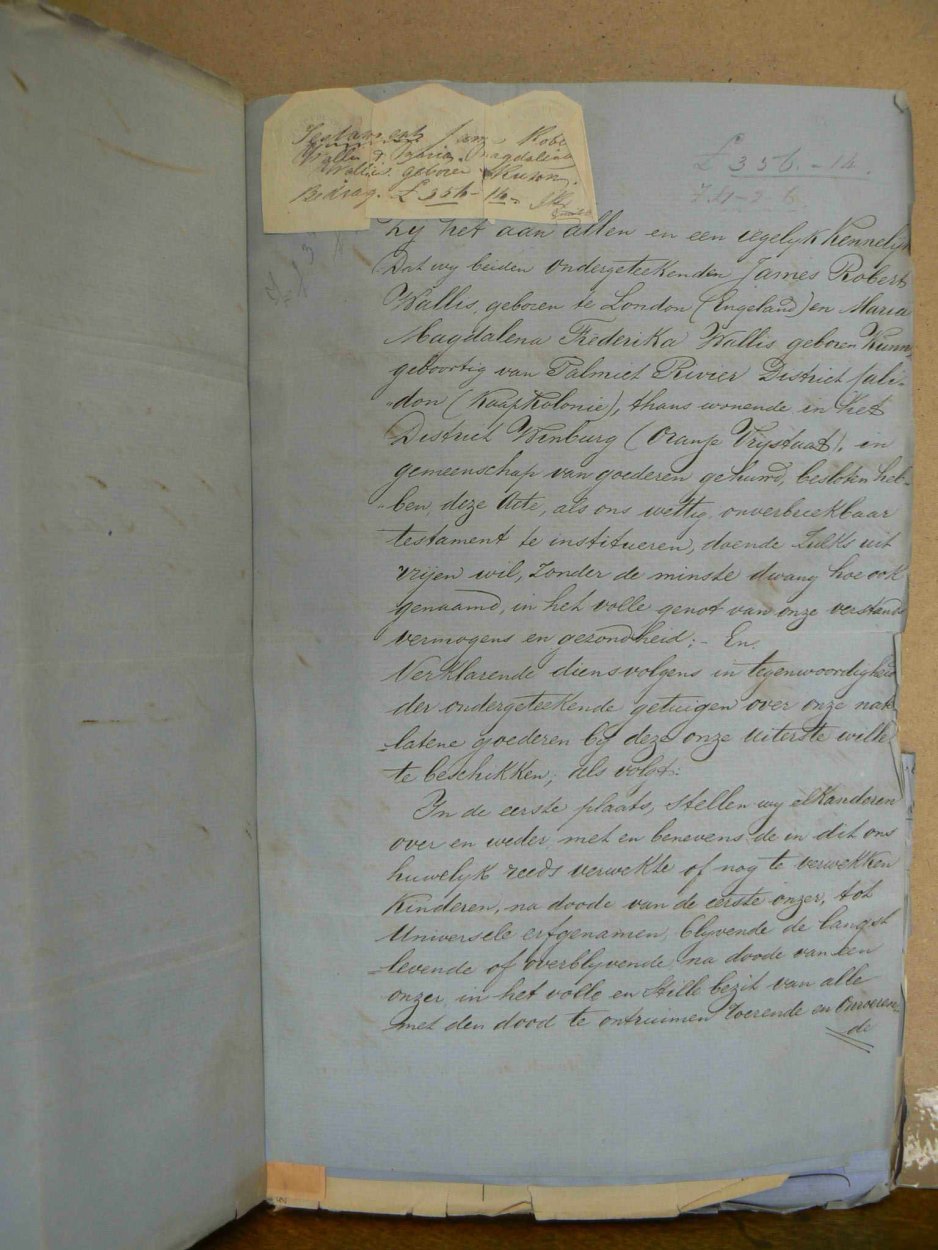 Testament James Robe
Wallis & Maria Magdalena
Wallis geboren
Bedrag £356-14-
£356.-14.
Zy het aan allen en een iegelyk kennelyk
Dat wy beiden ondergeteekenden James Robert
Wallis, geboren te London (Engeland) en Maria
Magdalena Frederika Wallis geboren
geboortig van Palmiet Rivier District Cali-
-don (Kaapkolonie), thans wonende in het
District Winburg (Oranje Vrystaat), in
gemeenschap van goederen gehuwd, besloten heb-
-ben, deze Acte, als ons wettig onverbreekbaar
testament te institueren, doende zulks uit
vrijen wil, zonder de minste dwang hoe ook
genaamd, in het volle genot van onze verstands
vermogens en gezondheid:- En.
Verklarende diensvolgens in tegenwoordigheid
der ondergeteekende getuigen over onze nate
-latene goederen by deze onze uiterste wille
te beschikken, als volgt:
In de eerste plaats, stellen wy elkanderen
over en weder, met en benevens de in dit ons
huwelyk reeds verwekte of nog te verwekken
kinderen, na doode van de eerste onzer, tot
Universele erfgenamen, blyvende de langst
-levende of overblyvende na doode van een
onzer in het volle en stille bezit van alle
met den dood te ontruimen roerende en Onroeren-
de